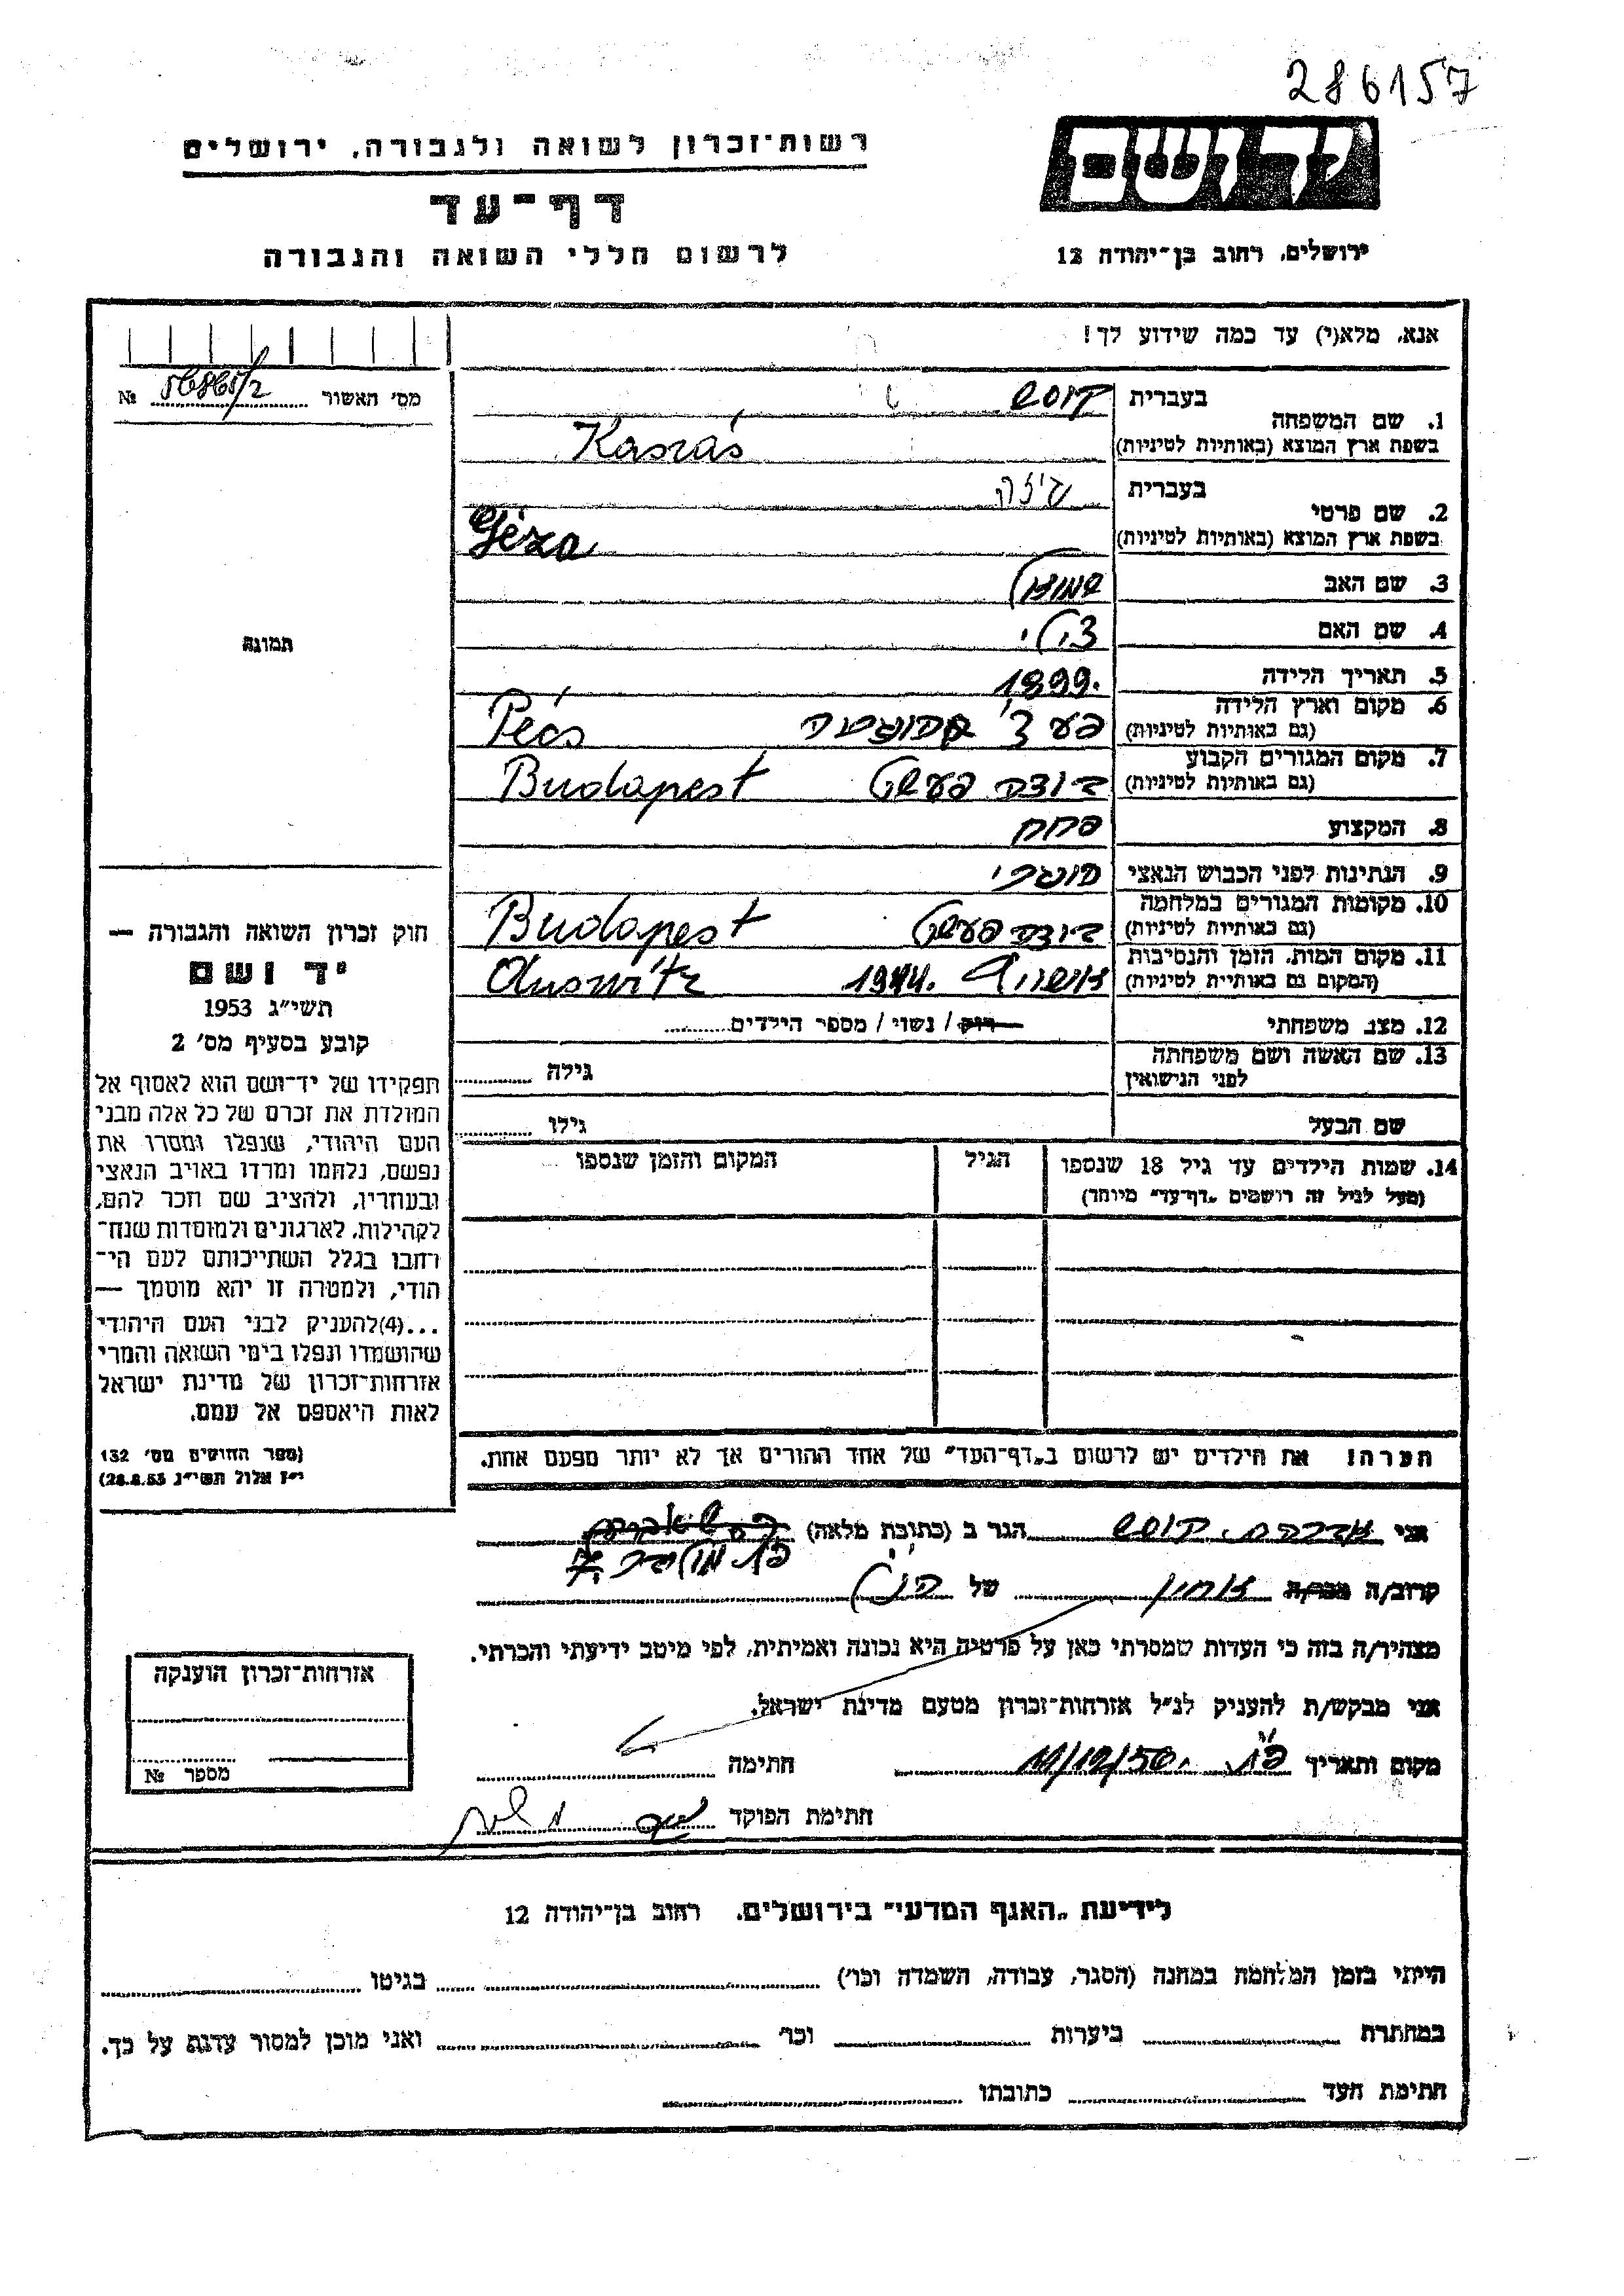 286157
יד ושם
רשות־זכרון לשואה ולגבורה, ירושלים
דף־עד
לרשום חללי השואה והגבורה
ירושלים, רחוב בן־יהודה 12
אנא, מלא(י) עד כמה שידוע לך!
מס׳ האשור №
1. שם המשפחה
בעברית
בשפת ארץ המוצא (באותיות לטיניות)
2. שם פרטי
בעברית גיזה
בשפת ארץ המוצא (באותיות לטיניות) Géza
3. שם האב שמואל
4. שם האם צילי
5. תאריך הלידה 1899.
6. מקום וארץ הלידה
(גם באותיות לטיניות) Pécs
7. מקום המגורים הקבוע
(גם באותיות לטיניות) בודפעשט Budapest
8. המקצוע פחח
9. הנתינות לפני הכבוש הנאצי הונגרי
10. מקומות המגורים במלחמה
(גם באותיות לטיניות) בודפעשט Budapest
11. מקום המות, הזמן והנסיבות
(המקום גם באותיית לטיניות) אושוויץ 1944. Auswitz
12. מצב משפחתי רוק / נשוי / מספר הילדים
13. שם האשה ושם משפחתה
לפני הנישואין גילה
שם הבעל גילו
14. שמות הילדים עד גיל 18 שנספו
(מעל לגיל זה רושמים „דף־עד” מיוחד)
הגיל
המקום והזמן שנספו
הערה! את הילדים יש לרשום ב„דף־העד” של אחד ההורים אך לא יותר מפעם אחת.
תמונה
חוק זכרון השואה והגבורה —
יד ושם
תשי״ג 1953
קובע בסעיף מס׳ 2
תפקידו של יד־ושם הוא לאסוף אל
המולדת את זכרם של כל אלה מבני
העם היהודי, שנפלו ומסרו את
נפשם, נלחמו ומרדו באויב הנאצי
ובעוזריו, ולהציב שם וזכר להם,
לקהילות, לארגונים ולמוסדות שנח־
רבו בגלל השתייכותם לעם הי־
הודי, ולמטרה זו יהא מוסמך —
...(4)להעניק לבני העם היהודי
שהושמדו ונפלו בימי השואה והמרי
אזרחות־זכרון של מדינת ישראל
לאות היאספם אל עמם.
(ספר החוקים מס׳ 132
י״ז אלול תשי״ג 28.8.53)
אני אברהם הגר ב (כתובת מלאה)
קרוב/ה מכר/ה אחיין של הנ״ל
מצהיר/ה בזה כי העדות שמסרתי כאן על פרטיה היא נכונה ואמיתית, לפי מיטב ידיעתי והכרתי.
אני מבקש/ת להעניק לנ״ל אזרחות־זכרון מטעם מדינת ישראל.
מקום ותאריך חתימה
חתימת הפוקד
אזרחות־זכרון הוענקה
מספר №
לידיעת „האגף המדעי” בירושלים, רחוב בן־יהודה 12
הייתי בזמן המלחמה במחנה (הסגר, עבודה, השמדה וכו׳) בגיטו
במחתרת ביערות וכו׳ ואני מוכן למסור עדות על כך.
חתימת העד כתובתו